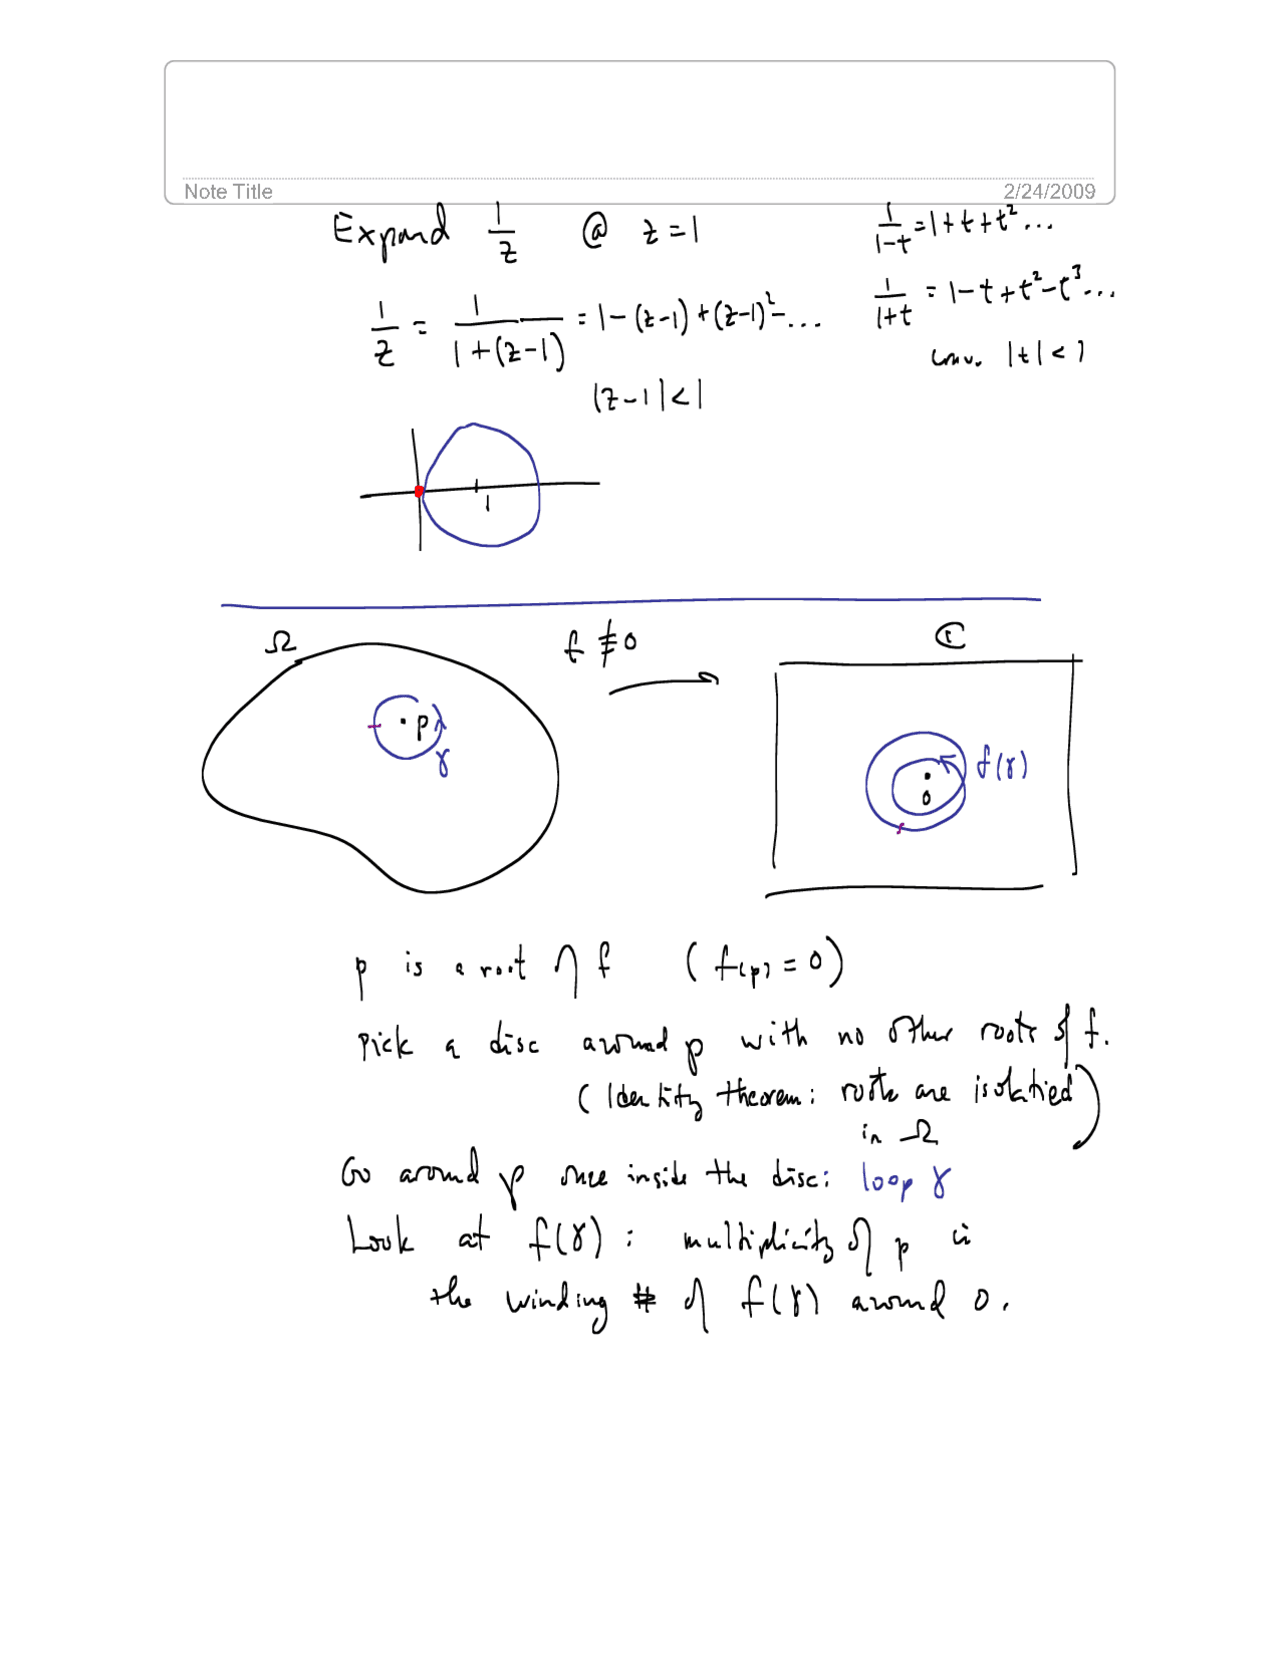 Note Title 2/24/2009
Expand 1/z @ z=1
1/(1-t) = 1+t+t²...
1/z = 1/(1+(z-1)) = 1-(z-1)+(z-1)²-...
1/(1+t) = 1-t+t²-t³...
conv. |t|<1
|z-1|<1
1
Ω f ≢ 0 ℂ
p
γ
f(γ)
0
p is a root of f (f(p)=0)
Pick a disc around p with no other roots of f.
(Identity theorem: roots are isolatied)
in Ω
Go around p once inside the disc: loop γ
Look at f(γ): multiplicity of p is
the winding # of f(γ) around 0.